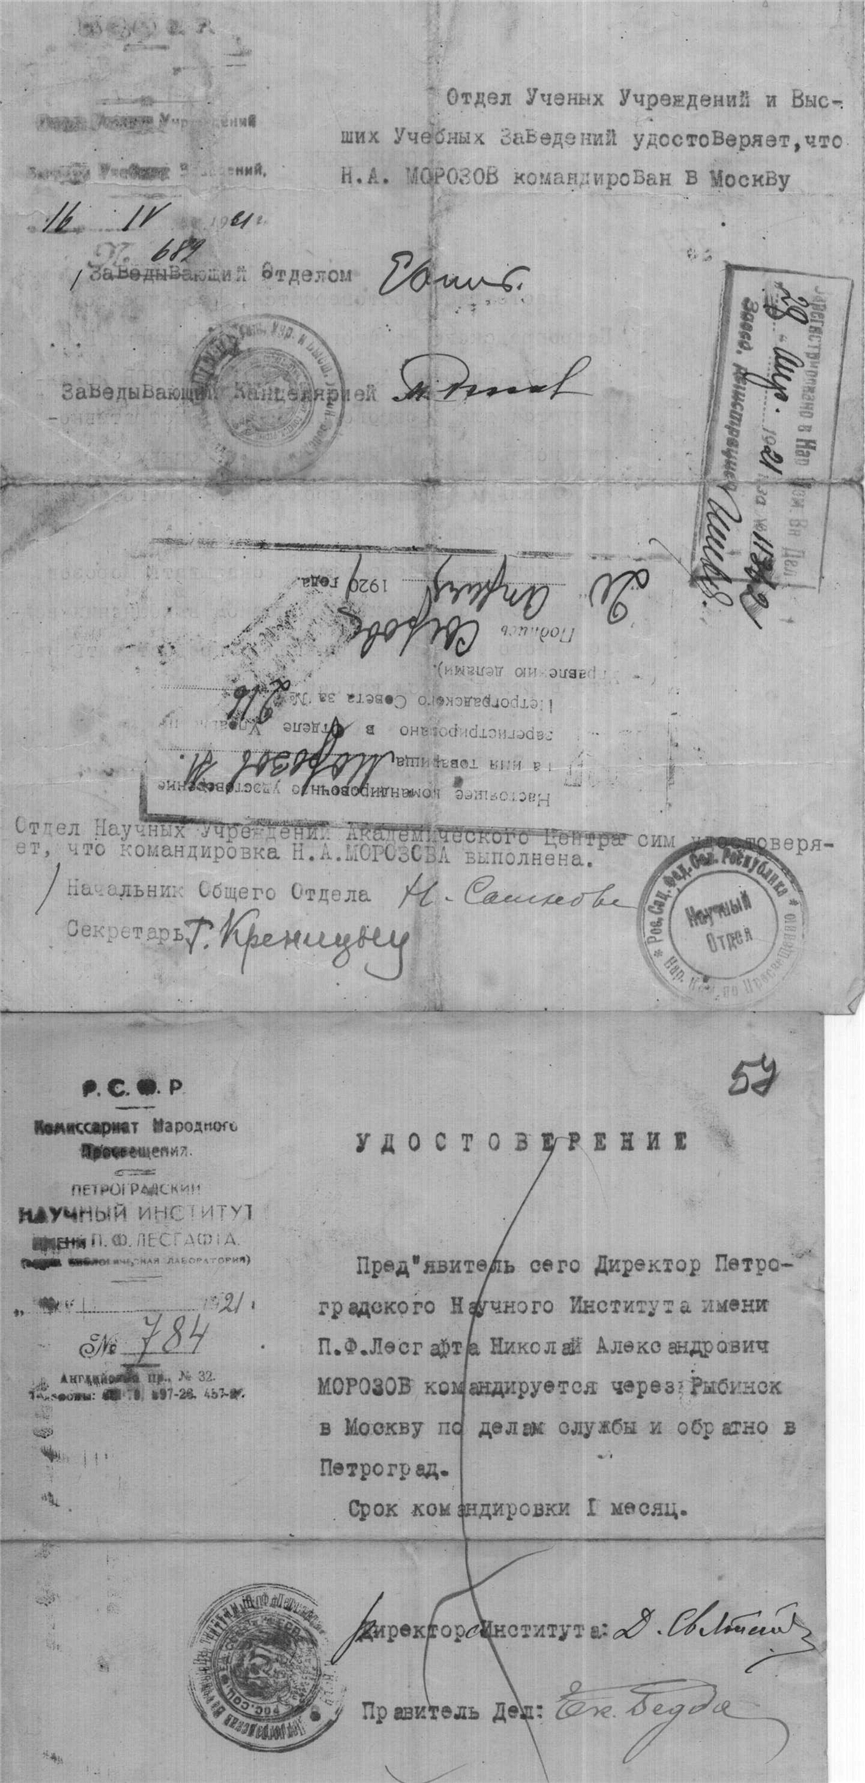 Отдел Ученых Учреждений и Выс-
ших Учебных Заведений удостоверяет, что
Н.А. МОРОЗОВ командирован в Москву
Учреждений
Учебных Заведений,
16 IV 1921 г.
№ 689
Заведывающий Отделом
Заведывающий Канцелярией
Зарегистрировано в Нар Ком Вн Дел
28 Апр. 1921 г за № 11362
Завед. Регистрацией
Настоящее командировочное удостоверение
на имя товарища Морозов Н.
зарегистрировано в Отделе Управления
Петроградского Совета за № 216
управлению делами).
Подпись
20 Апреля 1920 года.
Отдел Научных Учреждений Академического Центра сим удостоверя-
ет, что командировка Н.А.МОРОЗОВА выполнена.
Начальник Общего Отдела Н.
Секретарь Г. Креницын
* Рос. Соц. Фед. Сов. Республика * Нар. Ком. по Просвещению
Научный
Отдел
57
Р.С.Ф.Р
Комиссариат Народного
Просвещения.
ПЕТРОГРАДСКИЙ
НАУЧНЫЙ ИНСТИТУТ
ИМЕНИ П.Ф. ЛЕСГАФТА.
ЛАБОРАТОРИЯ)
1921 г.
№ 784
Английский пр., № 32.
Телефоны: 597-26. 457-
УДОСТОВЕРЕНИЕ
Пред"явитель сего Директор Петро-
градского Научного Института имени
П.Ф.Лесгафта Николай Александрович
МОРОЗОВ командируется через Рыбинск
в Москву по делам службы и обратно в
Петроград.
Срок командировки I месяц.
Директор Института: Д.
Правитель Дел: Ек. Бедда